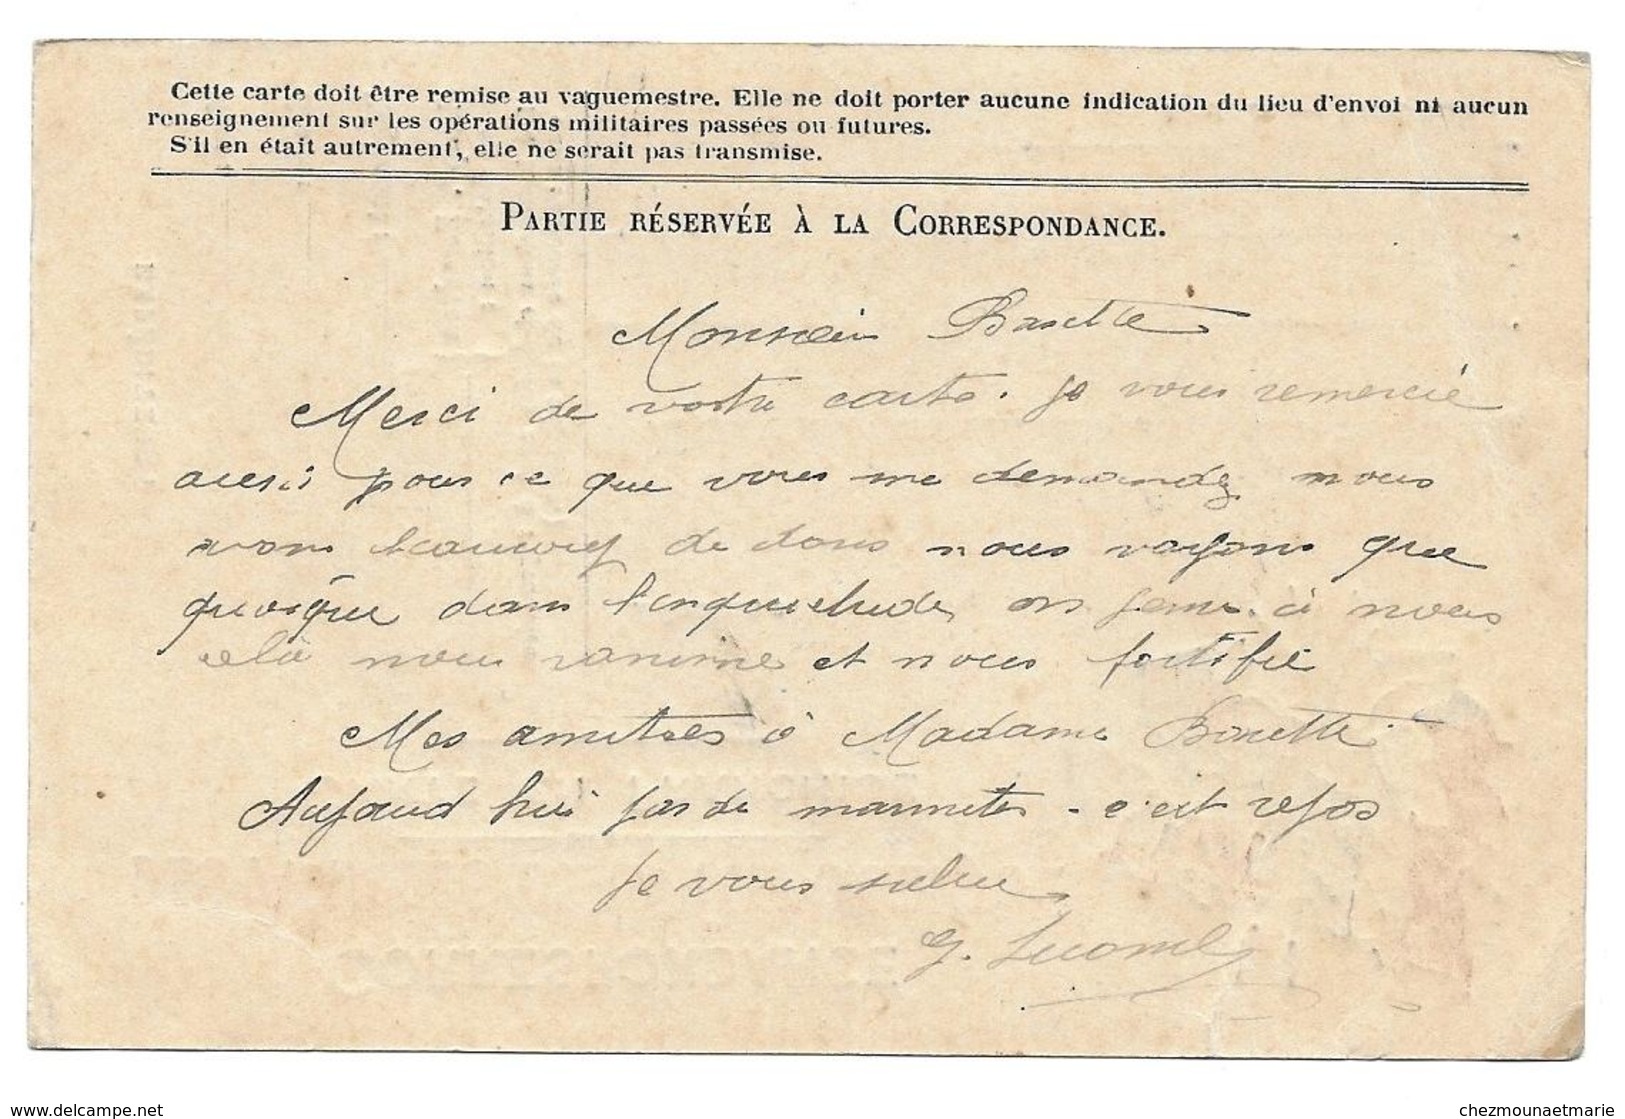 Cette carte doit être remise au vaguemestre. Elle ne doit porter aucune indication du lieu d'envoi ni aucun
renseignement sur les opérations militaires passées ou futures.
S'il en était autrement, elle ne serait pas transmise.
PARTIE RÉSERVÉE À LA CORRESPONDANCE.
Monsieur
Merci de votre carte. Je vous remercie
aussi pour ce que vous me demandez nous
avons beaucoup de dons nous voyons que
quoique dans l'inquietude, on pense à nous
cela nous ranime et nous fortifie
Mes amitiés à Madame
Aujourd hui pas de marmites - c'est repos
Je vous salue
G.
delcampe.net
chezmounaetmarie